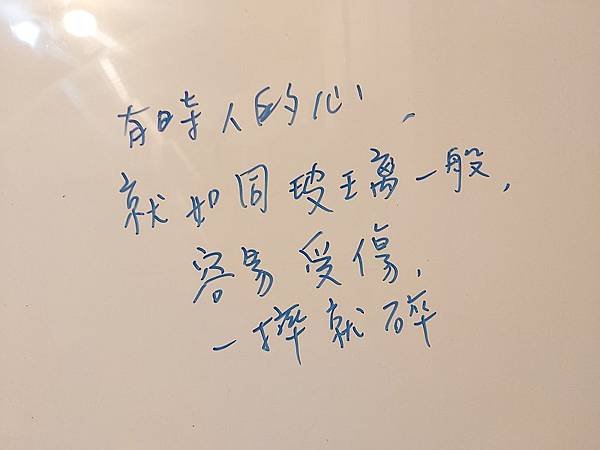 有時人的心，
就如同玻璃一般，
容易受傷，
一摔就碎